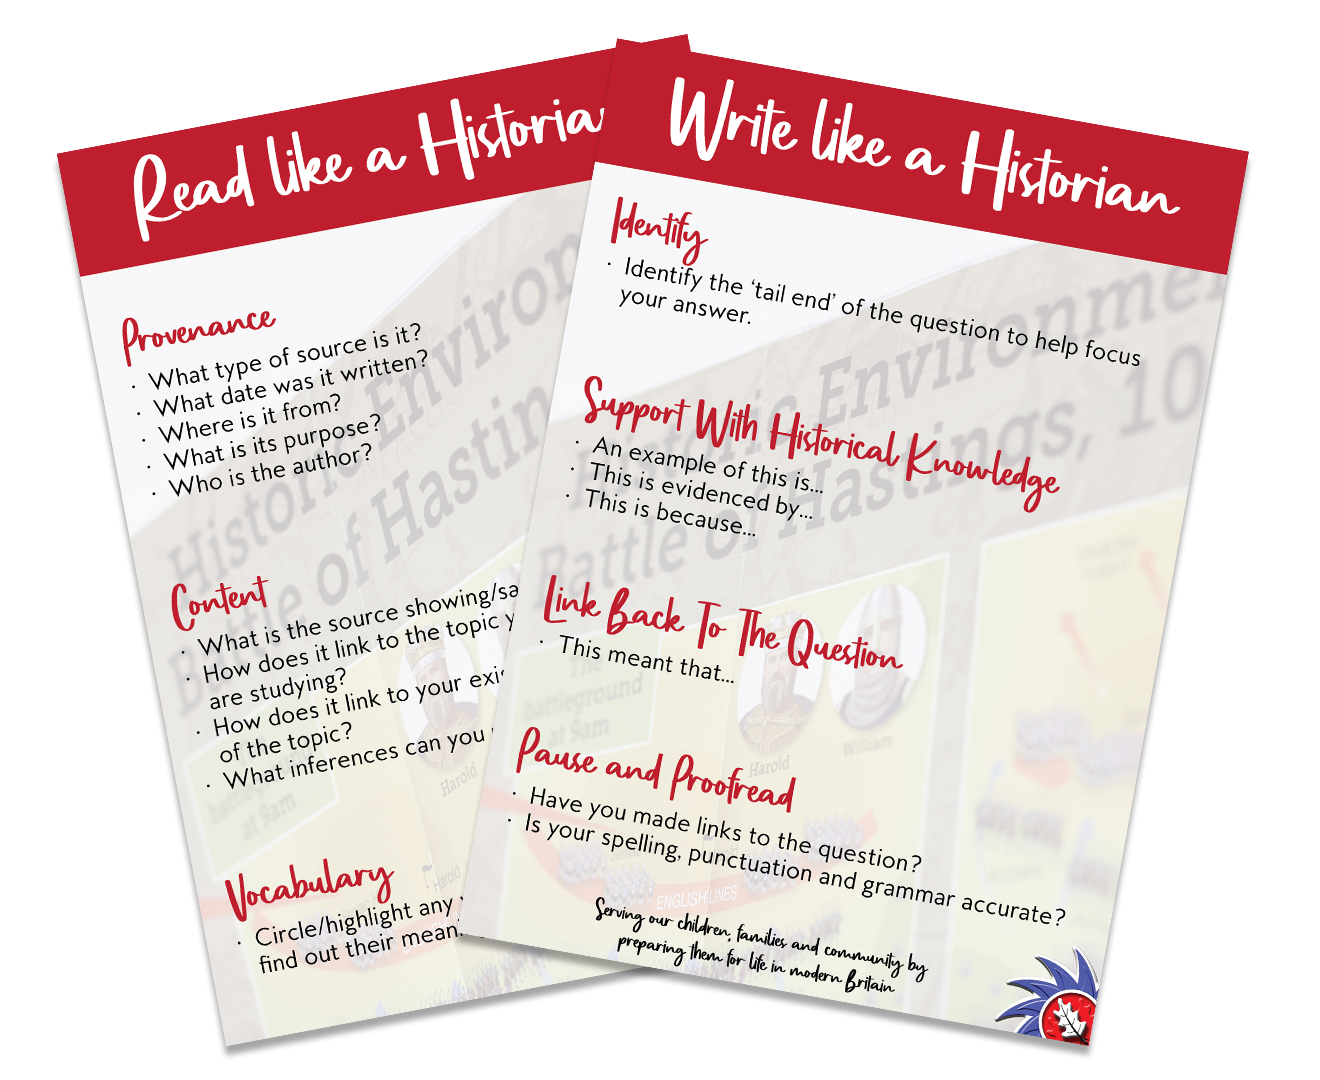 Read like a Historian
Provenance
· What type of source is it?
· What date was it written?
· Where is it from?
· What is its purpose?
· Who is the author?
Content
· What is the source showing/sa
· How does it link to the topic y
are studying?
· How does it link to your exis
of the topic?
· What inferences can you
Vocabulary
· Circle/highlight any
find out their mean
Historic Environ
Battle of Hastin
battleground
at 9am
Harold
Harold
Write like a Historian
Identify
· Identify the ‘tail end’ of the question to help focus
your answer.
Support With Historical Knowledge
· An example of this is...
· This is evidenced by...
· This is because...
Link Back To The Question
· This meant that...
Pause and Proofread
· Have you made links to the question?
· Is your spelling, punctuation and grammar accurate?
Serving our children, families and community by
preparing them for life in modern Britain
Historic Environmen
Battle of Hastings, 10
The
battleground
at 9am
Harold
William
ENGLISH LINES